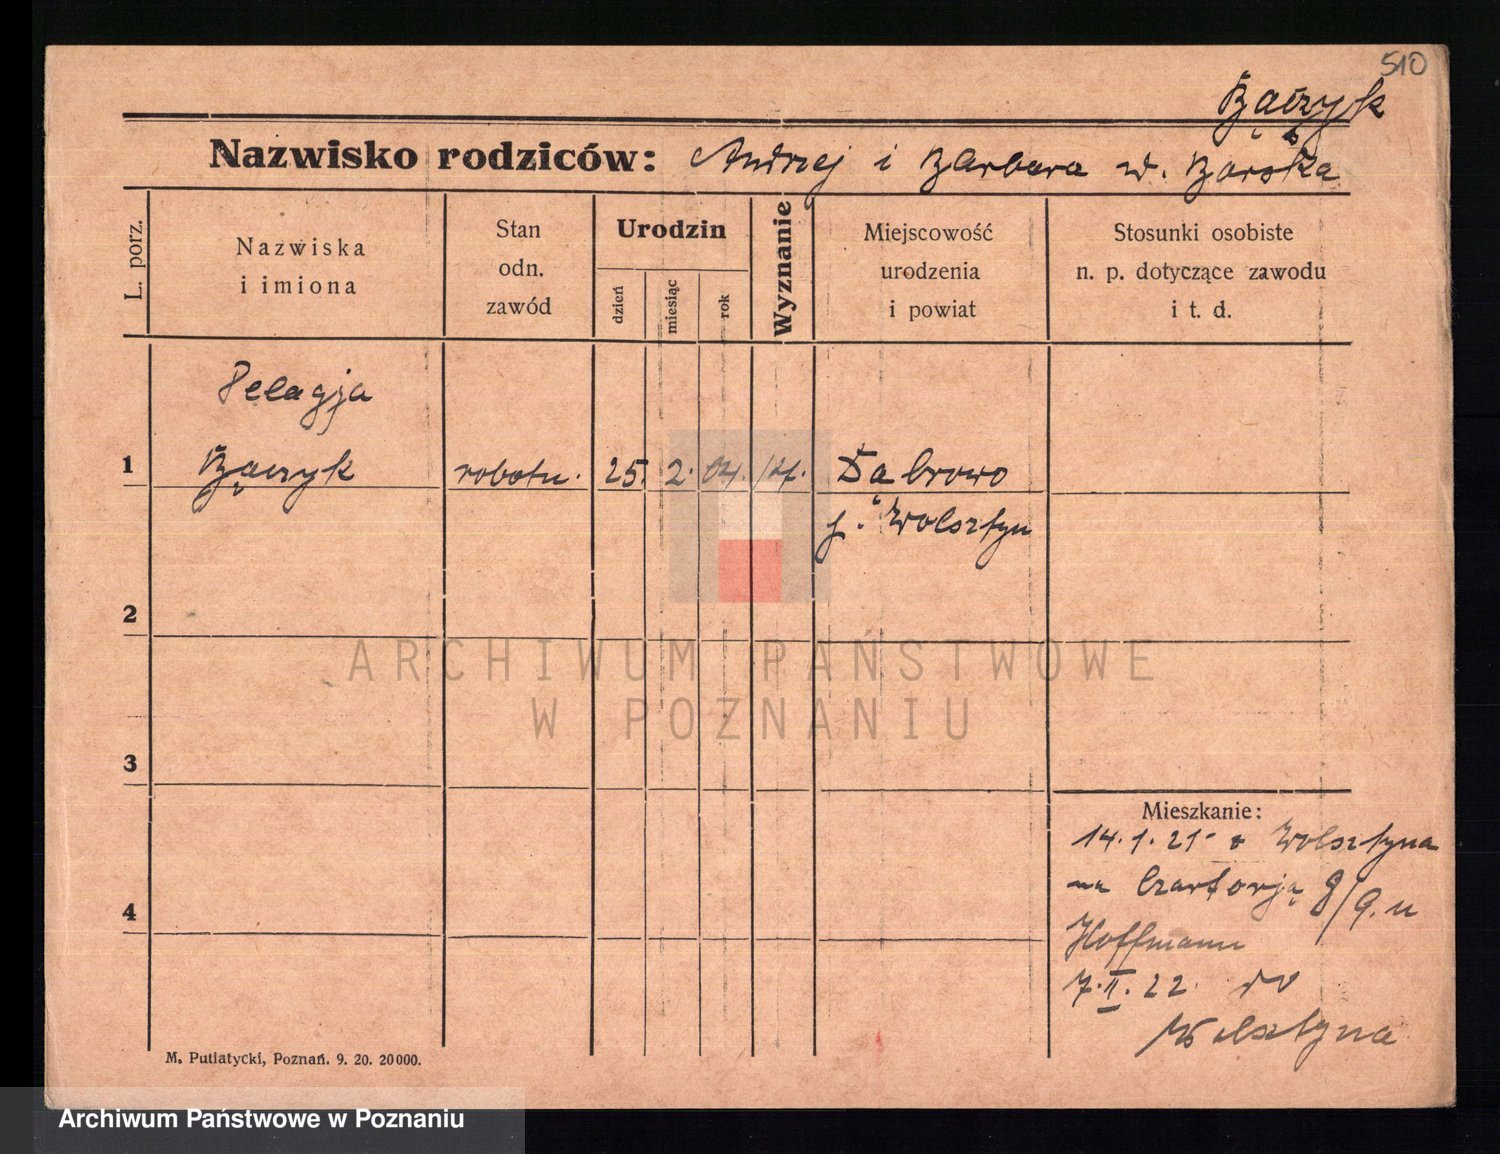 510
Bączyk
Nazwisko rodziców: Andrzej i Barbara z d. Borska
L. porz.
Nazwiska
i imiona
Stan
odn.
zawód
Urodzin
dzień
miesiąc
rok
Wyznanie
Miejscowość
urodzenia
i powiat
Stosunki osobiste
n. p. dotyczące zawodu
i t. d.
Pelagja
1 Bączyk robotn. 25. 2. 04. kat. Dąbrowo
p. Wolsztyn
2
3
4
Mieszkanie:
14.1.21 z Wolsztyna
na Czartorją 8/9. u
Hoffmann
7.II.22. do
Wolsztyna
M. Putiatycki, Poznań. 9. 20. 20000.
ARCHIWUM PAŃSTWOWE
W POZNANIU
Archiwum Państwowe w Poznaniu